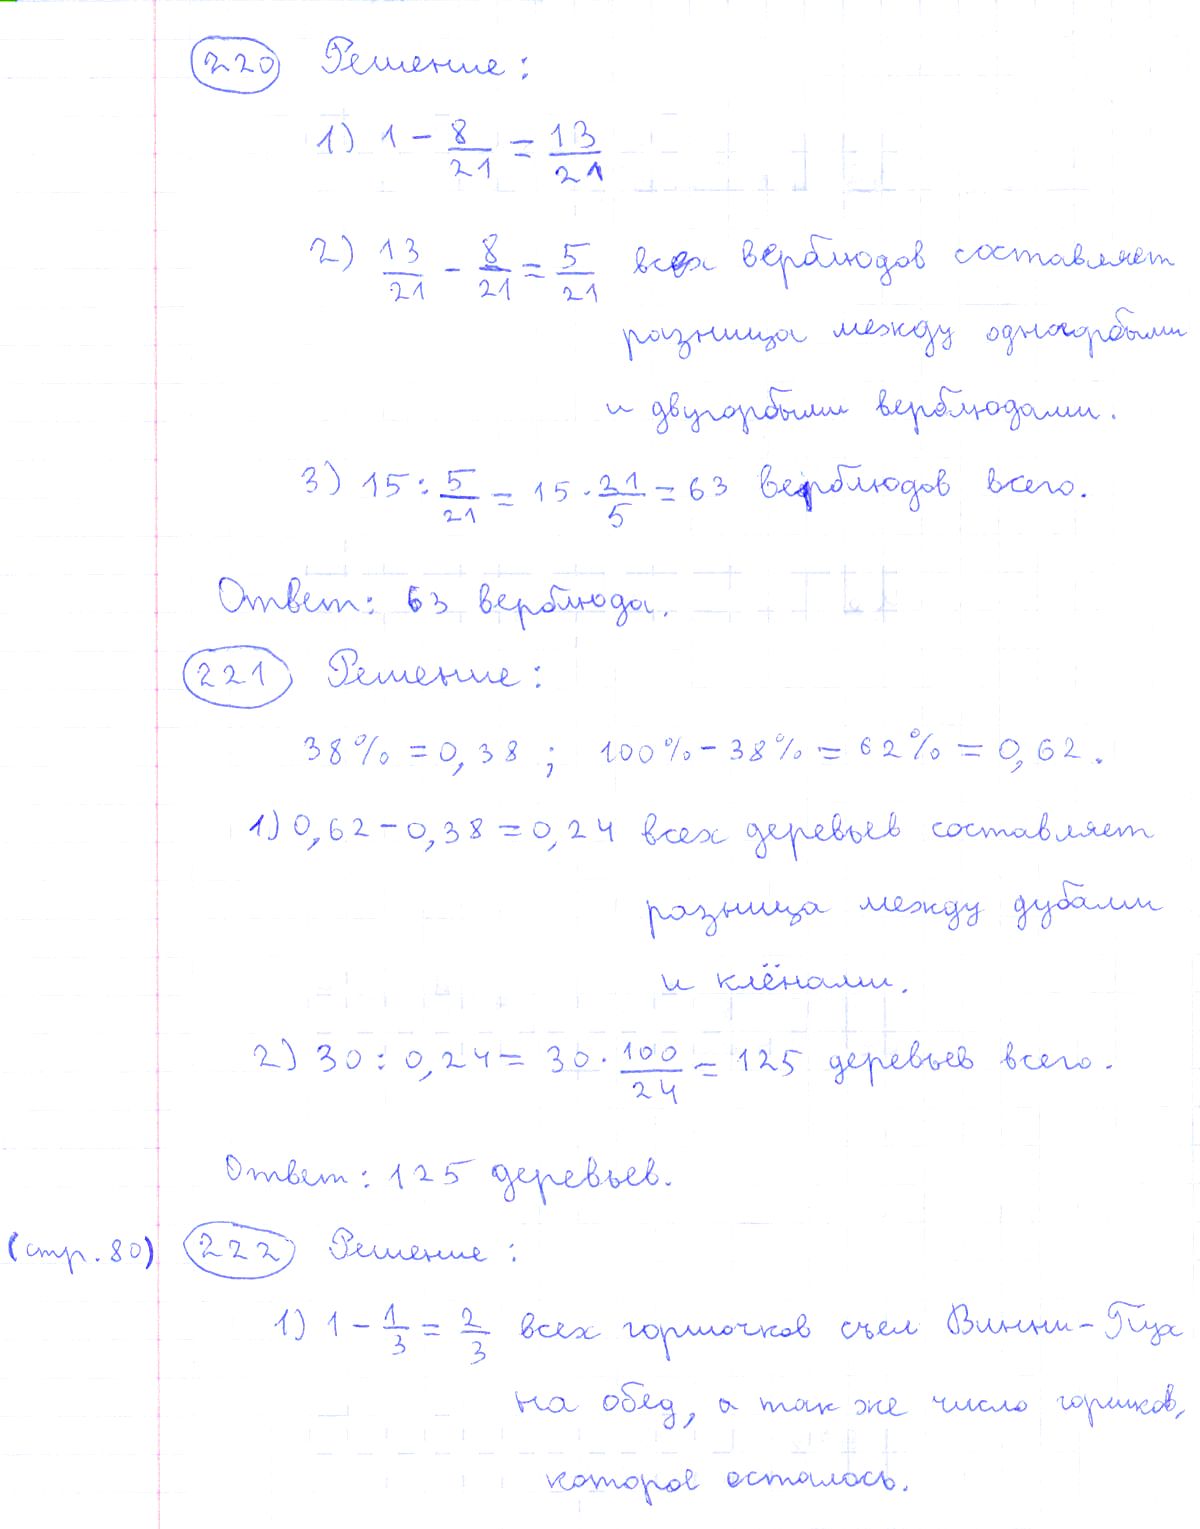 220 Решение:
1) 1 - 8/21 = 13/21
2) 13/21 - 8/21 = 5/21 всех верблюдов составляет
разница между одногорбыми
и двугорбыми верблюдами.
3) 15 : 5/21 = 15 · 21/5 = 63 верблюдов всего.
Ответ: 63 верблюда.
221 Решение:
38% = 0,38 ; 100% - 38% = 62% = 0,62.
1) 0,62 - 0,38 = 0,24 всех деревьев составляет
разница между дубами
и клёнами.
2) 30 : 0,24 = 30 · 100/24 = 125 деревьев всего.
Ответ: 125 деревьев.
(стр. 80) 222 Решение:
1) 1 - 1/3 = 2/3 всех горшочков съел Винни-Пух
на обед, а так же число горшков,
которое осталось.